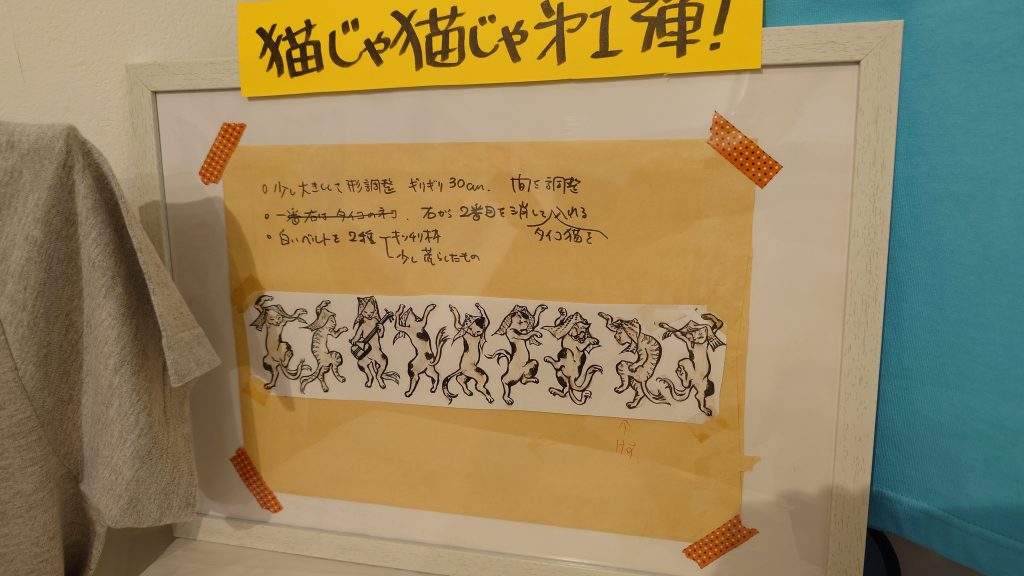 猫じゃ猫じゃ第1弾!
○ 少し大きくして形調整 ギリギリ30cm. 間を調整
○ 一番右はタイコのネコ. 右から2番目を消して入れる
タイコ猫を
○ 白いベルトを 2種 キッチリ枠
少し荒らしたもの
↑
けす